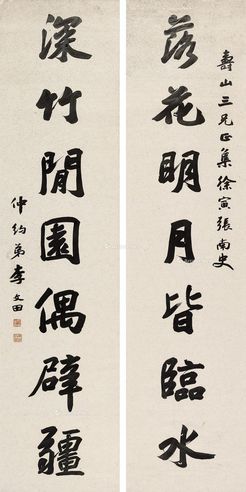 壽山三兄正集徐寅張南史
落花明月皆臨水
深竹閒園偶辟疆
仲約弟李文田